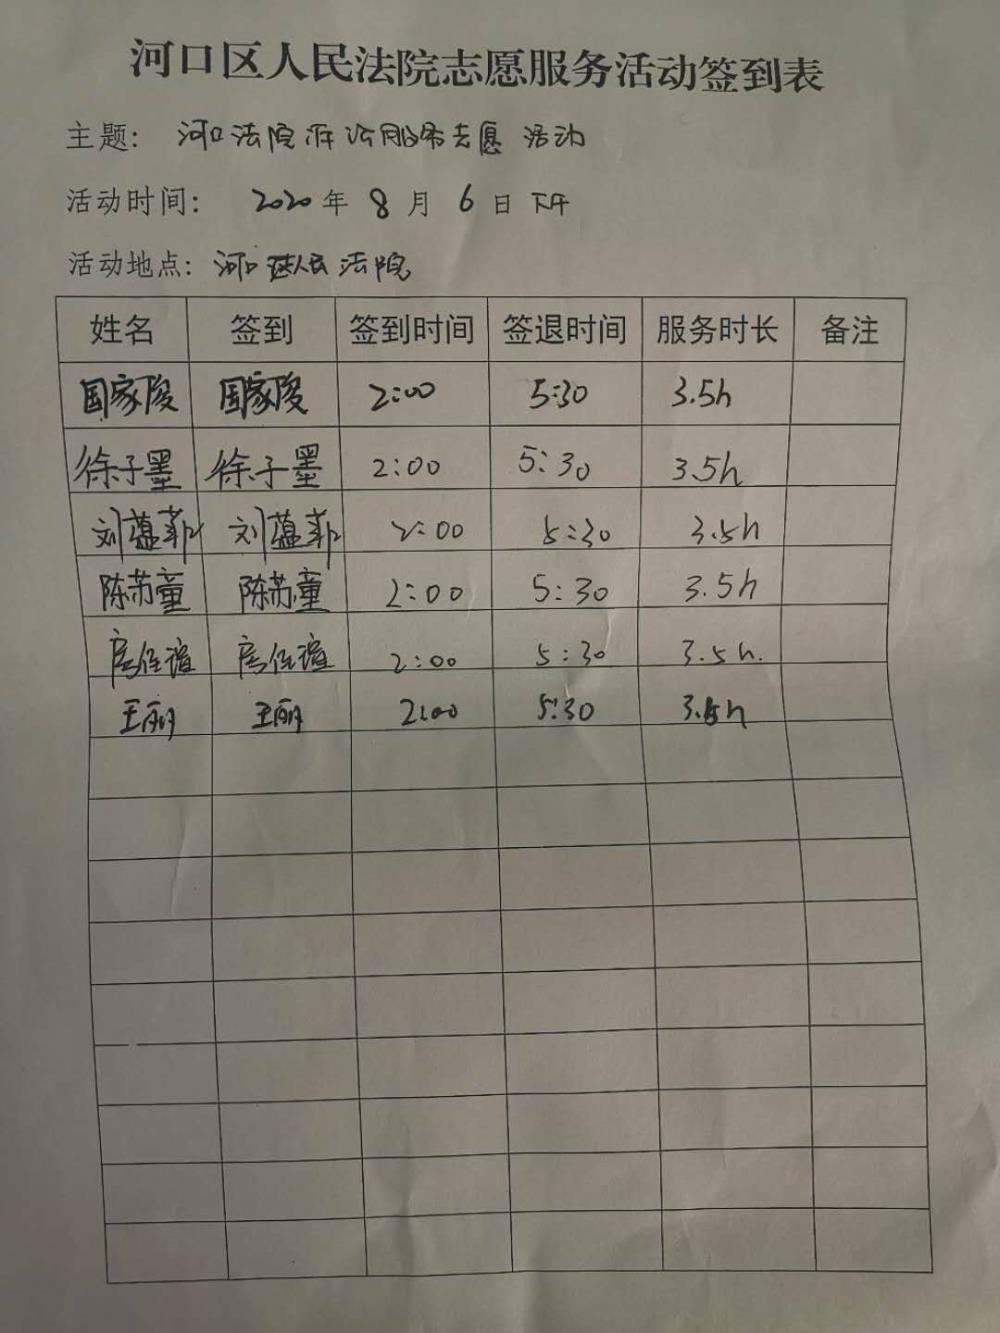 河口区人民法院志愿服务活动签到表
主题: 河口法院诉讼服务志愿活动
活动时间: 2020年8月6日下午
活动地点: 河口区人民法院
姓名 签到 签到时间 签退时间 服务时长 备注
国家俊 国家俊 2:00 5:30 3.5h
徐子墨 徐子墨 2:00 5:30 3.5h
刘蕴菲 刘蕴菲 2:00 5:30 3.5h
陈苏童 陈苏童 2:00 5:30 3.5h
房佳谊 房佳谊 2:00 5:30 3.5h.
王丽 王丽 2:00 5:30 3.5h